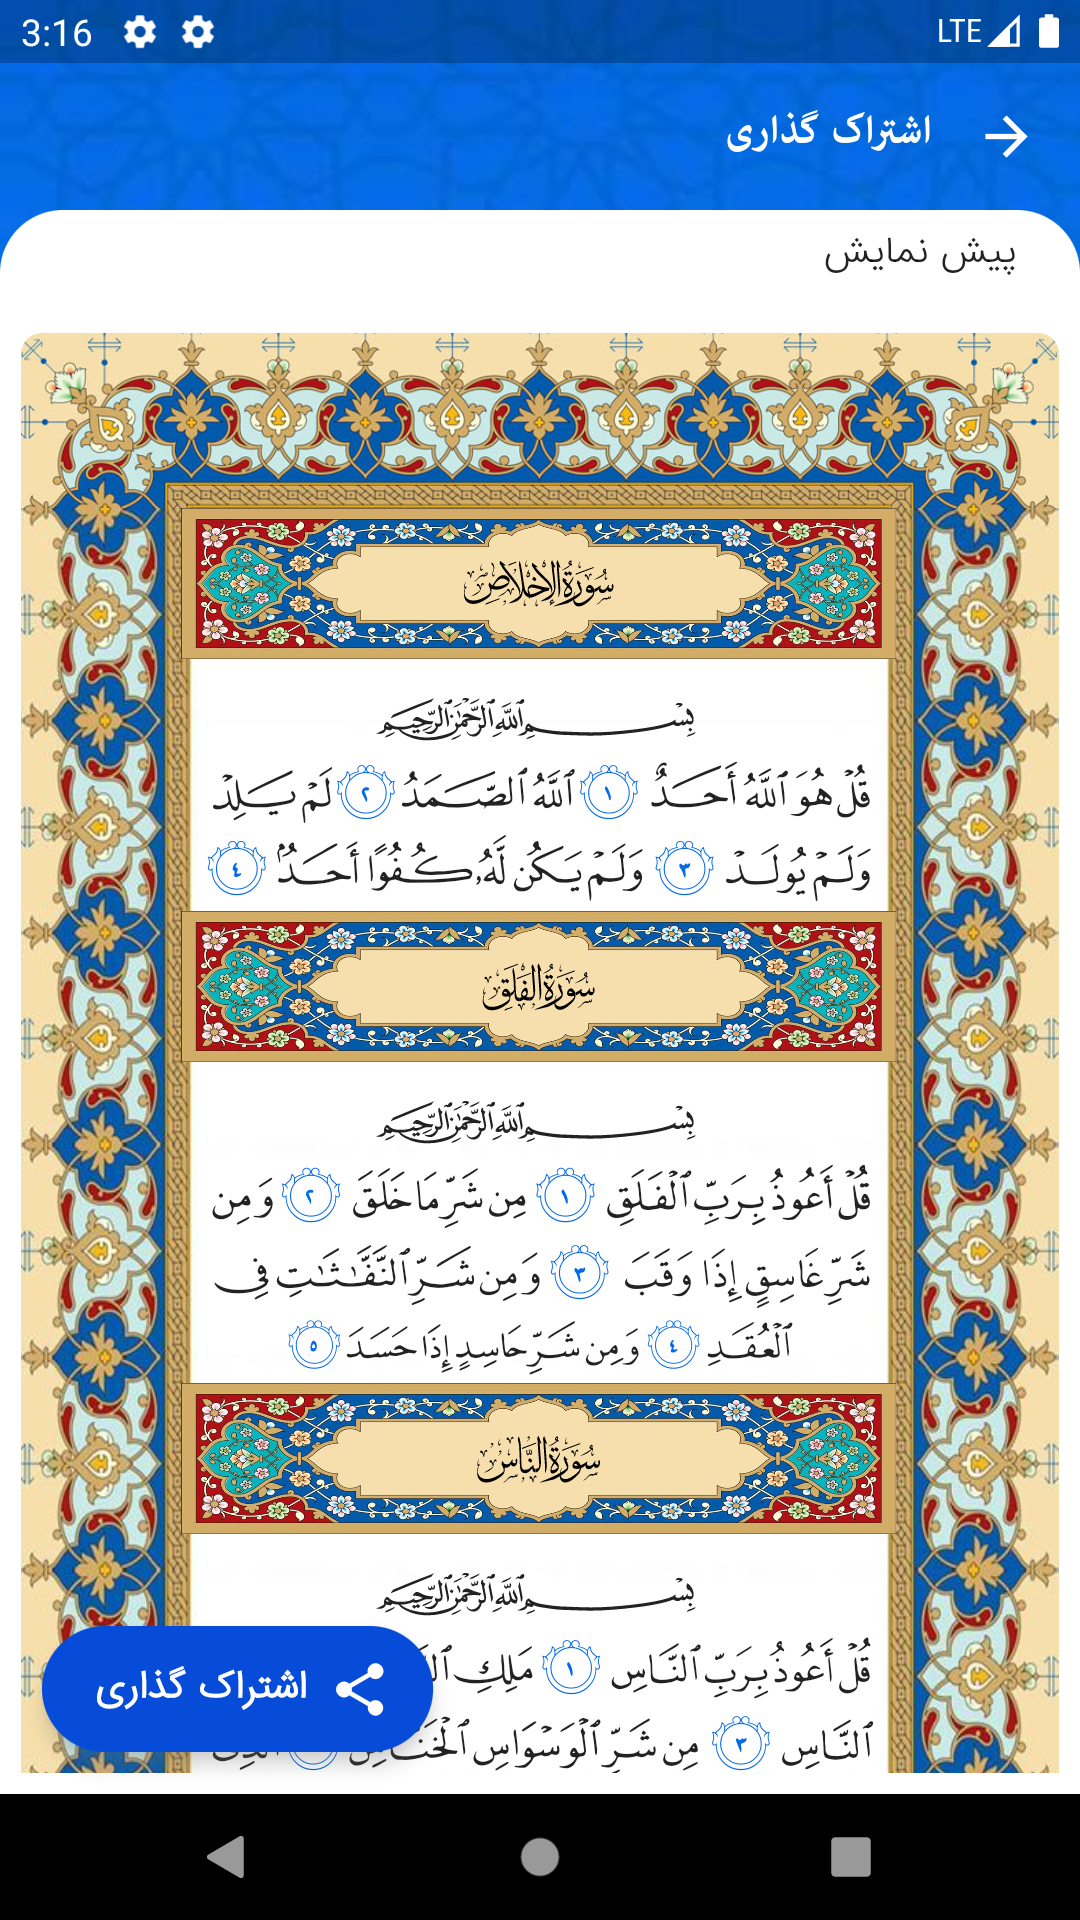 3:16 LTE
اشتراک گذاری
پیش نمایش
سُورَةُ الإِخْلَاصِ
بِسْمِ ٱللَّهِ ٱلرَّحْمَٰنِ ٱلرَّحِيمِ
قُلْ هُوَ ٱللَّهُ أَحَدٌ ١ ٱللَّهُ ٱلصَّمَدُ ٢ لَمْ يَلِدْ
وَلَمْ يُولَدْ ٣ وَلَمْ يَكُن لَّهُۥ كُفُوًا أَحَدٌۢ ٤
سُورَةُ الفَلَقِ
بِسْمِ ٱللَّهِ ٱلرَّحْمَٰنِ ٱلرَّحِيمِ
قُلْ أَعُوذُ بِرَبِّ ٱلْفَلَقِ ١ مِن شَرِّ مَا خَلَقَ ٢ وَمِن
شَرِّ غَاسِقٍ إِذَا وَقَبَ ٣ وَمِن شَرِّ ٱلنَّفَّـٰثَـٰتِ فِى
ٱلْعُقَدِ ٤ وَمِن شَرِّ حَاسِدٍ إِذَا حَسَدَ ٥
سُورَةُ النَّاسِ
بِسْمِ ٱللَّهِ ٱلرَّحْمَٰنِ ٱلرَّحِيمِ
قُلْ أَعُوذُ بِرَبِّ ٱلنَّاسِ ١ مَلِكِ
ٱلنَّاسِ ٣ مِن شَرِّ ٱلْوَسْوَاسِ ٱلْخَنَّاسِ
اشتراک گذاری